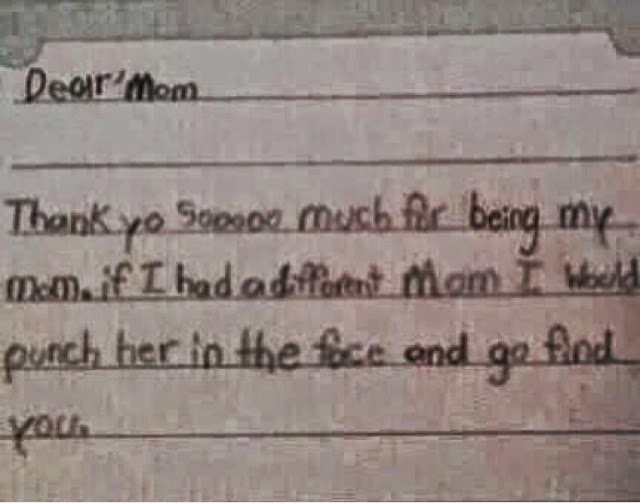 Dear Mom
Thank yo Sooooo much for being my
mom. if I had a different Mom I would
punch her in the face and go find
you.